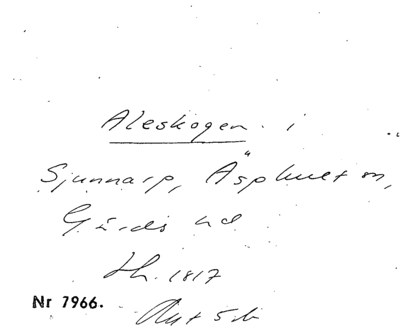 Aleskogen i
Sjunnarp, Äsphult sn,
Gärds hd
Lh. 1817
Nr 7966.